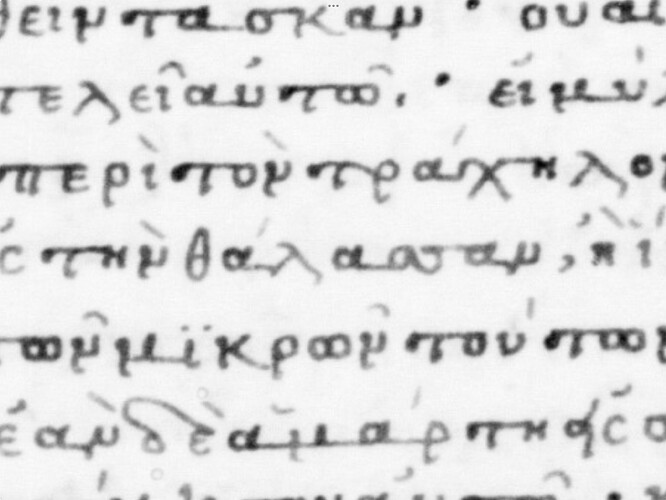 θεῖν τὰ σκαν · οὐαὶ
τελεῖ αὐτῶ. · εἰ μύλ
περὶ τὸν τράχηλον
ς τὴν θάλασσαν, ἢ ἵ
τῶν μϊκρῶν τούτων
ἐὰν δὲ ἁμάρτη εἰς σ